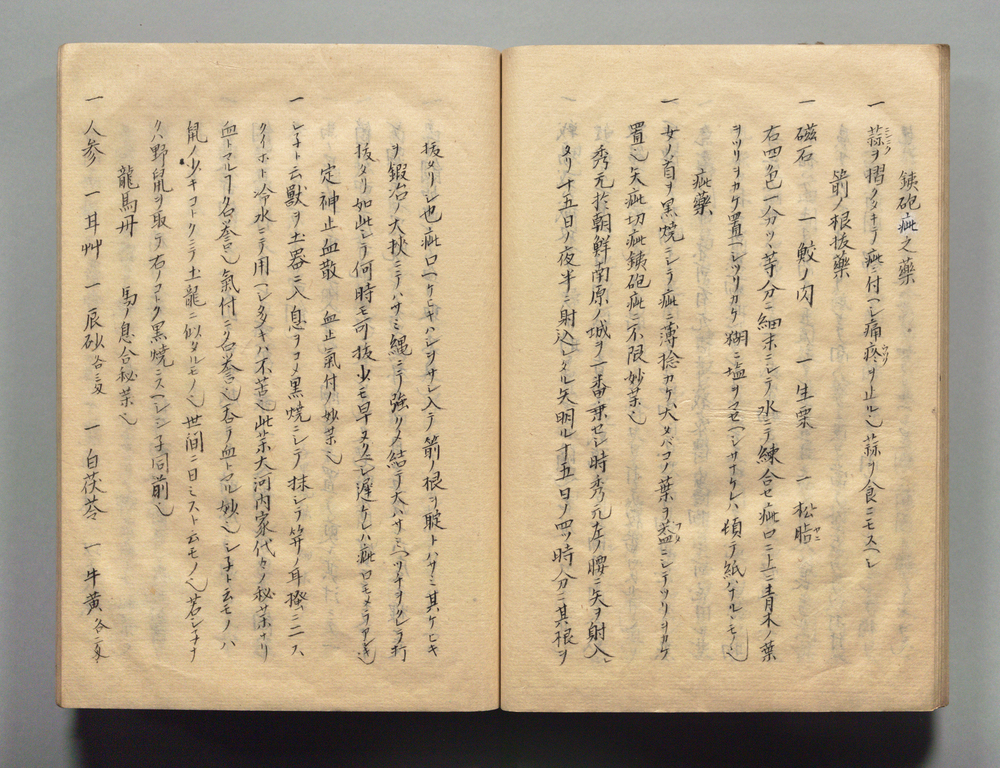 銕砲疵之藥
一 蒜ヲ摺タヽキテ疵ニ付ヘシ痛疼ヲ止ル也蒜ヲ食ニモスヘシ
箭ノ根抜藥
一 磁石 一 鮫ノ肉 一 生栗 一 松脂
右四色一分ツヽ等分ニ細末ニシテ水ニテ練合セ疵口ニ上ニ青木ノ葉
ヲツリヲカケ置ヘシツリカケ糊ニ塩ヲマセヘシサナケレハ頓テ紙ハナルヽモノ也
疵藥
一 女ノ首ヲ黒焼ニシテ疵ニ薄捻カケ大タバコノ葉ヲ蓋ニシテツリヲカケ
置也矢疵切疵銕砲疵ニ不限妙薬也
秀元於朝鮮南原ノ城ヲ一番乗セシ時秀元左ノ腰ニ矢ヲ射入
タリ十五日ノ夜半ニ射込レタル矢明ル十五日ノ四ツ時分ニ其根ヲ
抜タリシ也疵口ヘケヒキハシヲサシ入テ箭ノ根ヲ聢トハサミ其ケヒキ
ヲ鍛冶ノ大挟ニテハサミ縄ニテ強クシメ結テ大ハサミヘツチヲクレテ打
抜タリ如此シテ何時モ可抜少モ早キヨシ遅ケレハ疵口モメテアシキ也
定神止血散 血止氣付ノ妙薬也
一 シ子ト云獣ヲ土器ニ入息ヲコメ黒焼ニシテ抹シテ笄ノ耳撥ニ三ス
クイホト冷水ニテ用ヘシ多キハ不苦也此薬大河内家代々ノ秘薬ナリ
血トマルヿ名誉也氣付ニ名誉也呑テ血トマル妙也シ子ト云モノハ
鼠ノ少キコトクニテ土龍ニ似タルモノ也世間ニ日ミストト云モノ也若シナ
クハ野鼠ヲ取テ右ノコトク黒焼ニスヘシシ子同前也
龍馬丹 馬ノ息合秘薬也
一 人参 一 耳艸 一 辰砂各二匁 一 白茯苓 一 牛黄各一匁